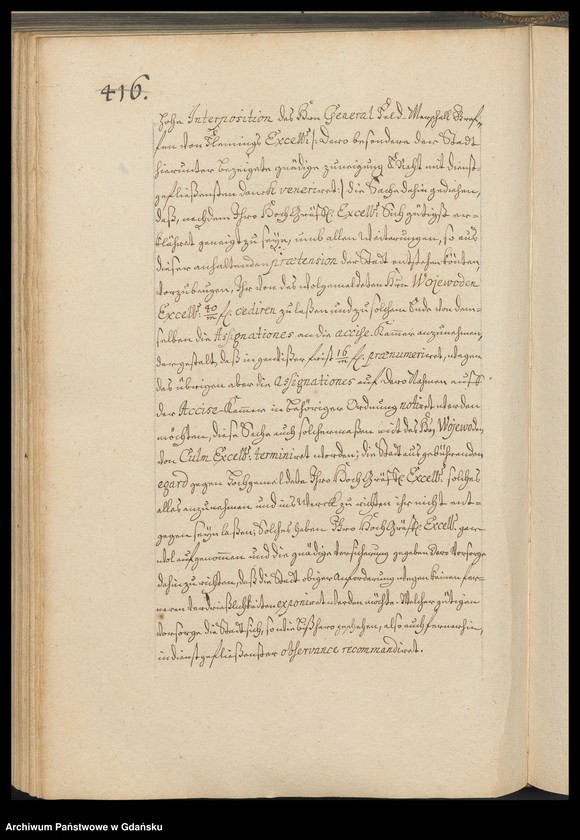 416.
hohe Interposition des Hrn General Feld-Marschall Graf-
fen von Flemings Excell: /: dero besondere der Stadt
hierunter bezeigte gnädige zuneigung E. Raht mit dienst-
gefließenstem danck veneriret :/ die Sache dahin gediehen,
daß, nachdem Ihro HochGräffl. Excell: Sich gütigst er-
klähret geneigt zu seyn, umb allen Weiterungen, so aus
dieser anhaltenden prætension der Stadt entstehen könten,
vorzubeugen, Ihr von des wolgemeldeten Hrn Wojewoden
Excell: 40/m fl. cediren zu laßen und zu solchem Ende von dem-
selben die Assignationes an die accise-Kamer anzunehmen,
dergestalt, daß in gewißer frist 16/m fl. prænumeriret, wegen
des übrigen aber die assignationes auf Dero Nahmen auff
der Accise-Kamer in behöriger Ordnung notiret werden
möchten, diese Sache auch solchermaßen mit des Hn. Wojewoden
von Culm Excell: terminiret worden; die Stadt aus gebührendem
egard gegen Hochgemeldete Ihro HochGräffl. Excell: solches
alles anzunehmen und ins Werck zu richten ihr nicht ent-
gegen seyn laßen; Solches haben Ihro HochGräffl. Excell: gar
wol aufgenommen und die gnädige Versicherung gegeben Dero Vorsorge
dahin zu richten, daß die Stadt obiger Anforderung wegen keinen fer-
neren Verdrießlichkeiten exponiret werden möchte. Welcher gütigen
Vorsorge die Stadt sich, so wie bißhero geschehen, also auch fernerhin,
in dienstgefließenster observance recommandiret.
Archiwum Państwowe w Gdańsku